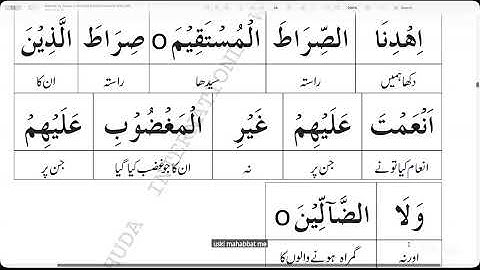 اِهْدِنَا الصِّرَاطَ الْمُسْتَقِيْمَ o صِرَاطَ الَّذِيْنَ
دکھا ہمیں راستہ سیدھا راستہ ان کا
اَنْعَمْتَ عَلَيْهِمْ غَيْرِ الْمَغْضُوْبِ عَلَيْهِمْ
انعام کیا تونے جن پر نہ ان کا جو غضب کیا گیا جن پر
وَلَا الضَّآلِّيْنَ o
اور نہ گمراہ ہونے والوں کا
uski mahabbat me